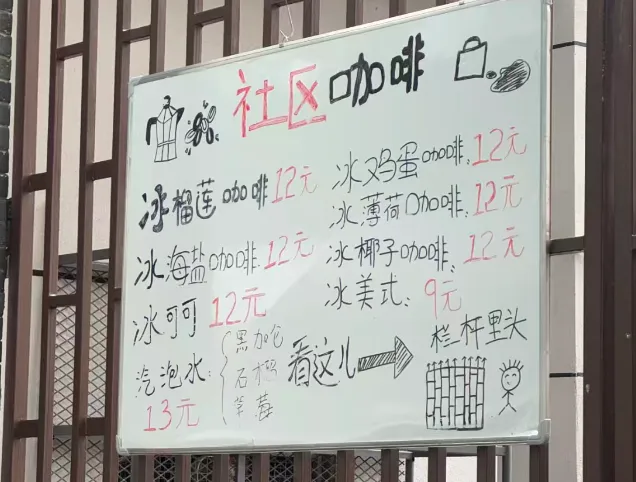 社区咖啡
冰榴莲咖啡12元
冰鸡蛋咖啡.12元
冰薄荷咖啡.12元
冰海盐咖啡.12元
冰椰子咖啡.12元
冰可可 12元
冰美式:9元
汽泡水:
黑加仑
石榴
草莓
13元
看这儿
栏杆里头